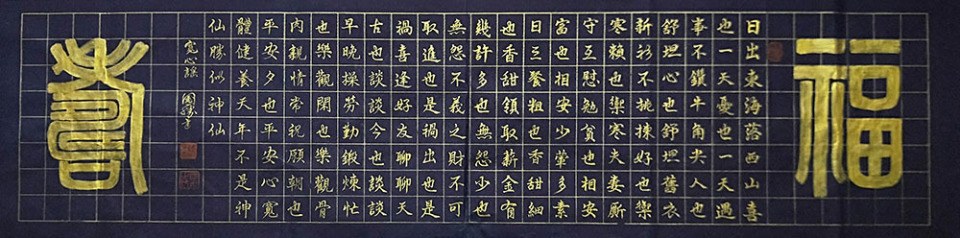 福
日出東海落西山喜
也一天憂也一天遇
事不鑽牛角尖人也
舒坦心也舒坦舊衣
新衫不挑揀好也禦
寒賴也禦寒夫妻廝
守互慰勉貧也相安
富也相安少葷多素
日三餐粗也香甜細
也香甜領取薪金有
幾許多也無怨少也
無怨不義之財不可
取進也是禍出也是
禍喜逢好友聊聊天
古也談談今也談談
早晚操勞勤鍛煉忙
也樂觀閑也樂觀骨
肉親情常祝願朝也
平安夕也平安心寬
體健養天年不是神
仙勝似神仙
寬心謠
壽